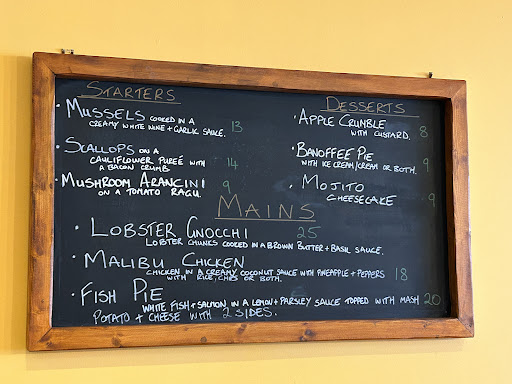 STARTERS
• MUSSELS COOKED IN A
CREAMY WHITE WINE + GARLIC SAUCE. 13
• SCALLOPS ON A
CAULIFLOWER PUREÉ WITH 14
A BACON CRUMB
• MUSHROOM ARANCINI 9
ON A TOMATO RAGU.
DESSERTS
• APPLE CRUMBLE 8
WITH CUSTARD.
• BANOFFEE PIE 9
WITH ICE CREAM/CREAM OR BOTH.
• MOJITO
CHEESECAKE 9
MAINS
• LOBSTER GNOCCHI 25
LOBSTER CHUNKS COOKED IN A BROWN BUTTER + BASIL SAUCE.
• MALIBU CHICKEN
CHICKEN IN A CREAMY COCONUT SAUCE WITH PINEAPPLE + PEPPERS 18
WITH RICE, CHIPS OR BOTH.
• FISH PIE
WHITE FISH + SALMON IN A LEMON + PARSLEY SAUCE TOPPED WITH MASH 20
POTATO + CHEESE WITH 2 SIDES.